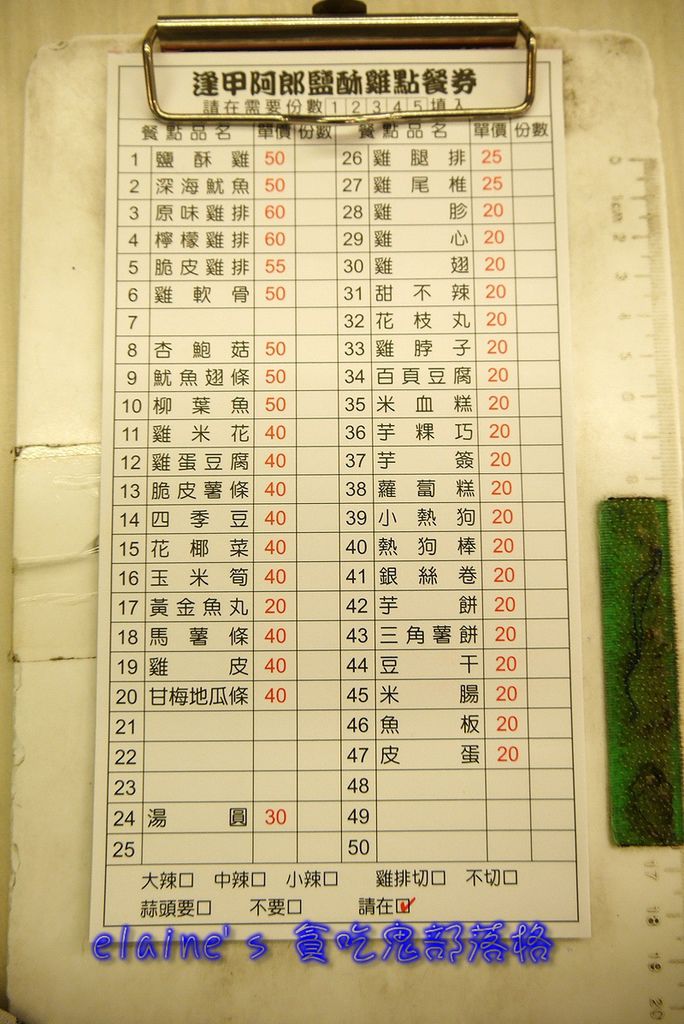 逢甲阿郎鹽酥雞點餐券
請在需要份數 1 2 3 4 5 填入
餐點品名 單價 份數 餐點品名 單價 份數
1 鹽酥雞 50 26 雞腿排 25
2 深海魷魚 50 27 雞尾椎 25
3 原味雞排 60 28 雞胗 20
4 檸檬雞排 60 29 雞心 20
5 脆皮雞排 55 30 雞翅 20
6 雞軟骨 50 31 甜不辣 20
7 32 花枝丸 20
8 杏鮑菇 50 33 雞脖子 20
9 魷魚翅條 50 34 百頁豆腐 20
10 柳葉魚 50 35 米血糕 20
11 雞米花 40 36 芋粿巧 20
12 雞蛋豆腐 40 37 芋簽 20
13 脆皮薯條 40 38 蘿蔔糕 20
14 四季豆 40 39 小熱狗 20
15 花椰菜 40 40 熱狗棒 20
16 玉米筍 40 41 銀絲卷 20
17 黃金魚丸 20 42 芋餅 20
18 馬薯條 40 43 三角薯餅 20
19 雞皮 40 44 豆干 20
20 甘梅地瓜條 40 45 米腸 20
21 46 魚板 20
22 47 皮蛋 20
23 48
24 湯圓 30 49
25 50
大辣□ 中辣□ 小辣□ 雞排切□ 不切□
蒜頭要□ 不要□ 請在☑
elaine's 貪吃鬼部落格